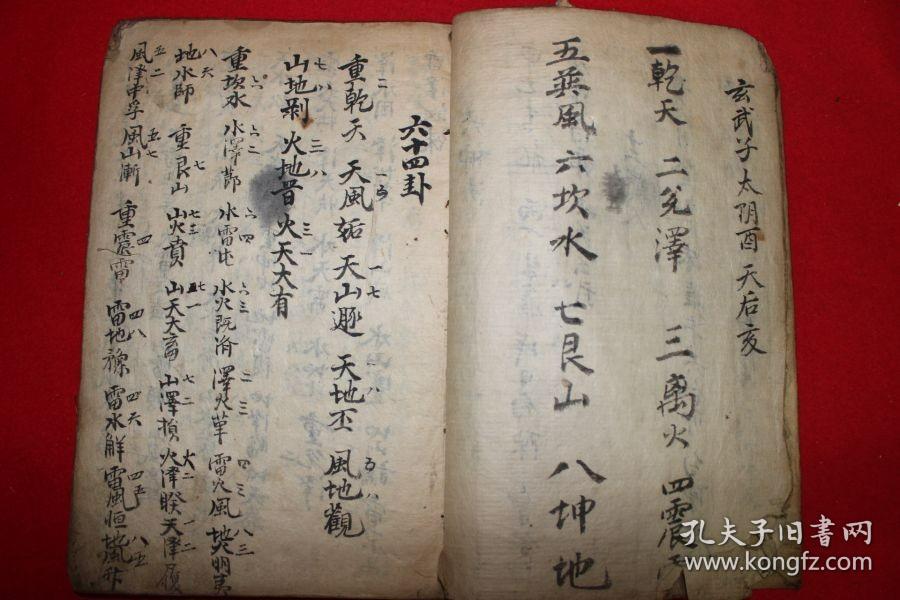 玄武子太阴酉天后亥
一乾天 二兑澤 三离火 四震
五巽風 六坎水 七艮山 八坤地
六十四卦
重乾天 天風姤 天山遯 天地否 風地觀
山地剥 火地晋 火天大有
重坎水 水澤節 水雷屯 水火既濟 澤火革 雷火風 地火明夷
地水師 重艮山 山火賁 山天大畜 山澤損 火澤睽 天澤履
風澤中孚 風山漸 重震雷 雷地豫 雷水解 雷風恒 地風升
孔夫子旧书网
www.kongfz.com